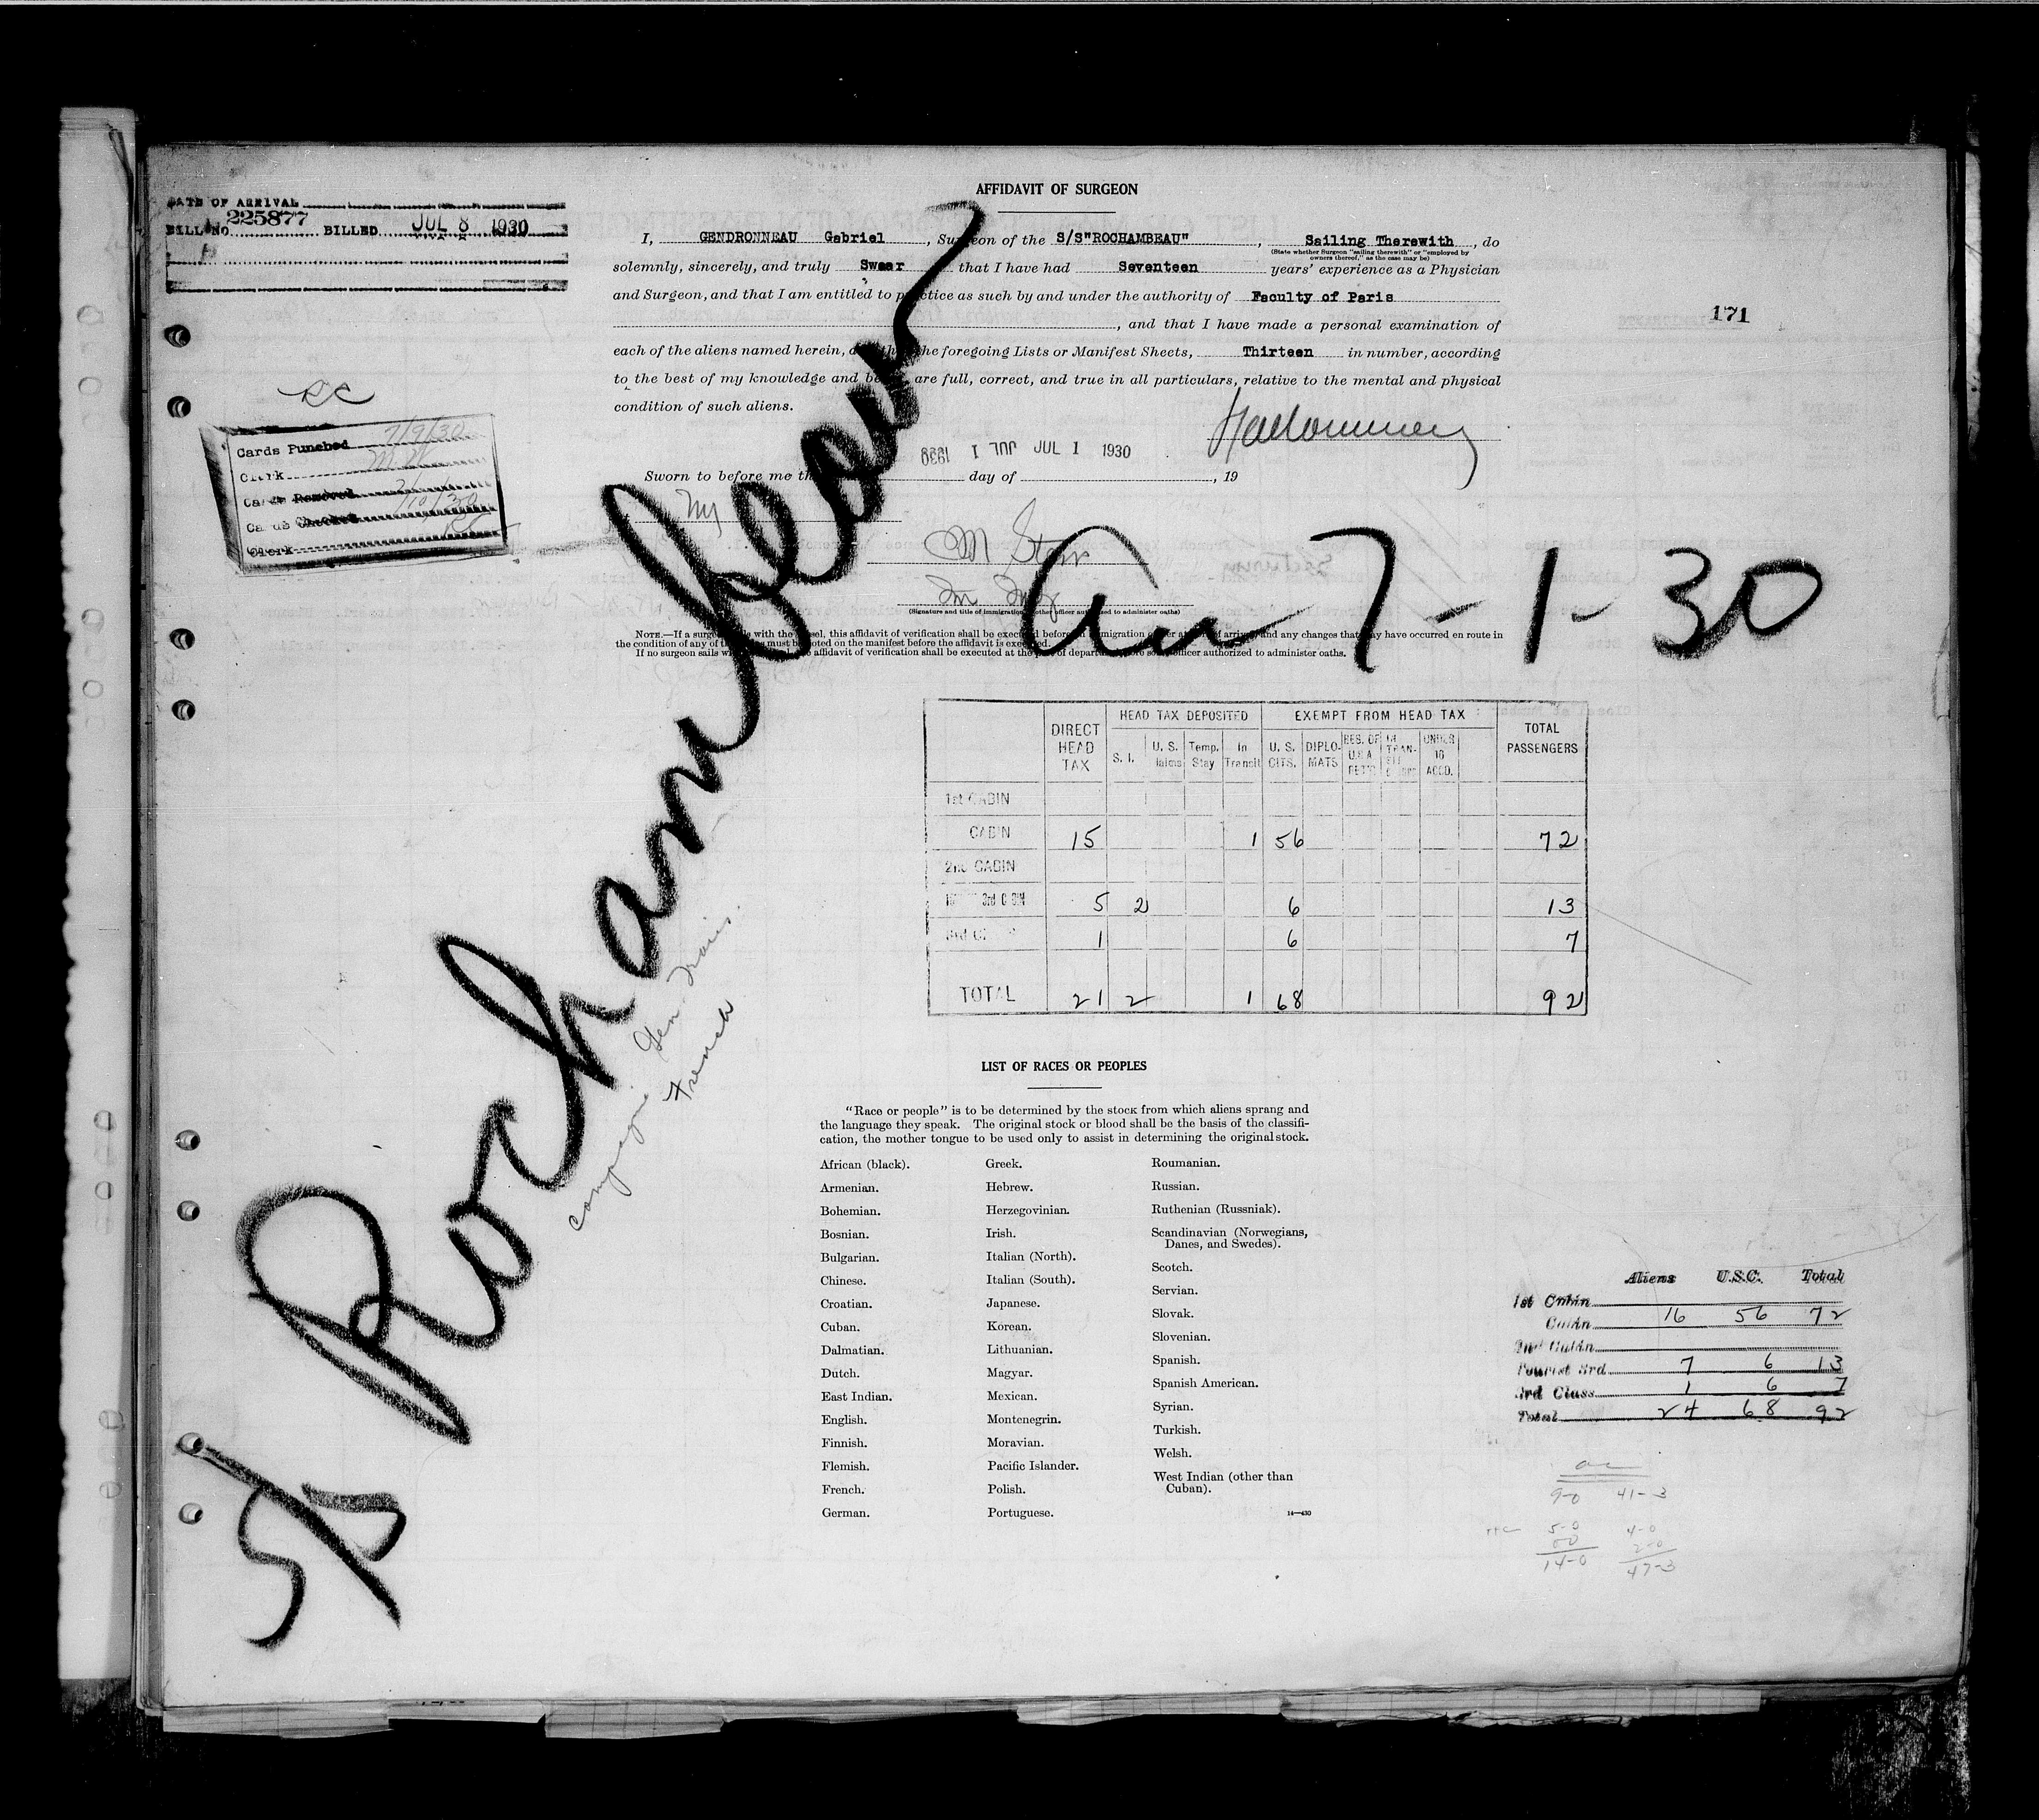 DATE OF ARRIVAL
BILL NO. 225877 BILLED JUL 8 1930
AFFIDAVIT OF SURGEON
I, GENDRONNEAU Gabriel, Surgeon of the S/S"ROCHAMBEAU", Sailing Therewith, do
(State whether Surgeon "sailing therewith" or "employed by
owners thereof," as the case may be)
solemnly, sincerely, and truly Swear that I have had Seventeen years' experience as a Physician
and Surgeon, and that I am entitled to practice as such by and under the authority of Faculty of Paris
, and that I have made a personal examination of
171
each of the aliens named herein, the foregoing Lists or Manifest Sheets, Thirteen in number, according
to the best of my knowledge and are full, correct, and true in all particulars, relative to the mental and physical
condition of such aliens.
RC
Cards Punched 7/9/30
Clerk
Cards Removed
Cards Checked
Clerk
JUL 1 1930 JUL 1 1930
Sworn to before me day of , 19
Ny
M Starr
(Signature and title of immigration other officer authorized to administer oaths)
Arr 7-1-30
NOTE.—If a surgeon sails with the vessel, this affidavit of verification shall be executed before immigration officer at of arrival, and any changes that may have occurred en route in
the condition of any of must be noted on the manifest before the affidavit is executed.
If no surgeon sails affidavit of verification shall be executed at the of departure, before some officer authorized to administer oaths.
S/S Rochambeau
Gen
French
DIRECT HEAD TAX HEAD TAX DEPOSITED EXEMPT FROM HEAD TAX TOTAL PASSENGERS
S. I. U. S. Temp. Stay In Transit U. S. CITS. DIPLO-MATS RES. OF U.S.A. UNDER 16 ACCD.
1st CABIN
CABIN 15 1 56 72
2nd CABIN
3rd CABIN 5 2 6 13
3rd 1 6 7
TOTAL 21 2 1 68 92
LIST OF RACES OR PEOPLES
"Race or people" is to be determined by the stock from which aliens sprang and
the language they speak. The original stock or blood shall be the basis of the classifi-
cation, the mother tongue to be used only to assist in determining the original stock.
African (black).
Armenian.
Bohemian.
Bosnian.
Bulgarian.
Chinese.
Croatian.
Cuban.
Dalmatian.
Dutch.
East Indian.
English.
Finnish.
Flemish.
French.
German.
Greek.
Hebrew.
Herzegovinian.
Irish.
Italian (North).
Italian (South).
Japanese.
Korean.
Lithuanian.
Magyar.
Mexican.
Montenegrin.
Moravian.
Pacific Islander.
Polish.
Portuguese.
Roumanian.
Russian.
Ruthenian (Russniak).
Scandinavian (Norwegians,
Danes, and Swedes).
Scotch.
Servian.
Slovak.
Slovenian.
Spanish.
Spanish American.
Syrian.
Turkish.
Welsh.
West Indian (other than
Cuban).
14—430
Aliens U.S.C. Total
1st Cabin
Cabin 16 56 72
2nd Cabin
Tourist 3rd 7 6 13
3rd Class 1 6 7
Total 24 68 92
9-0 41-3
5-0 4-0
2-0
14-0 47-3